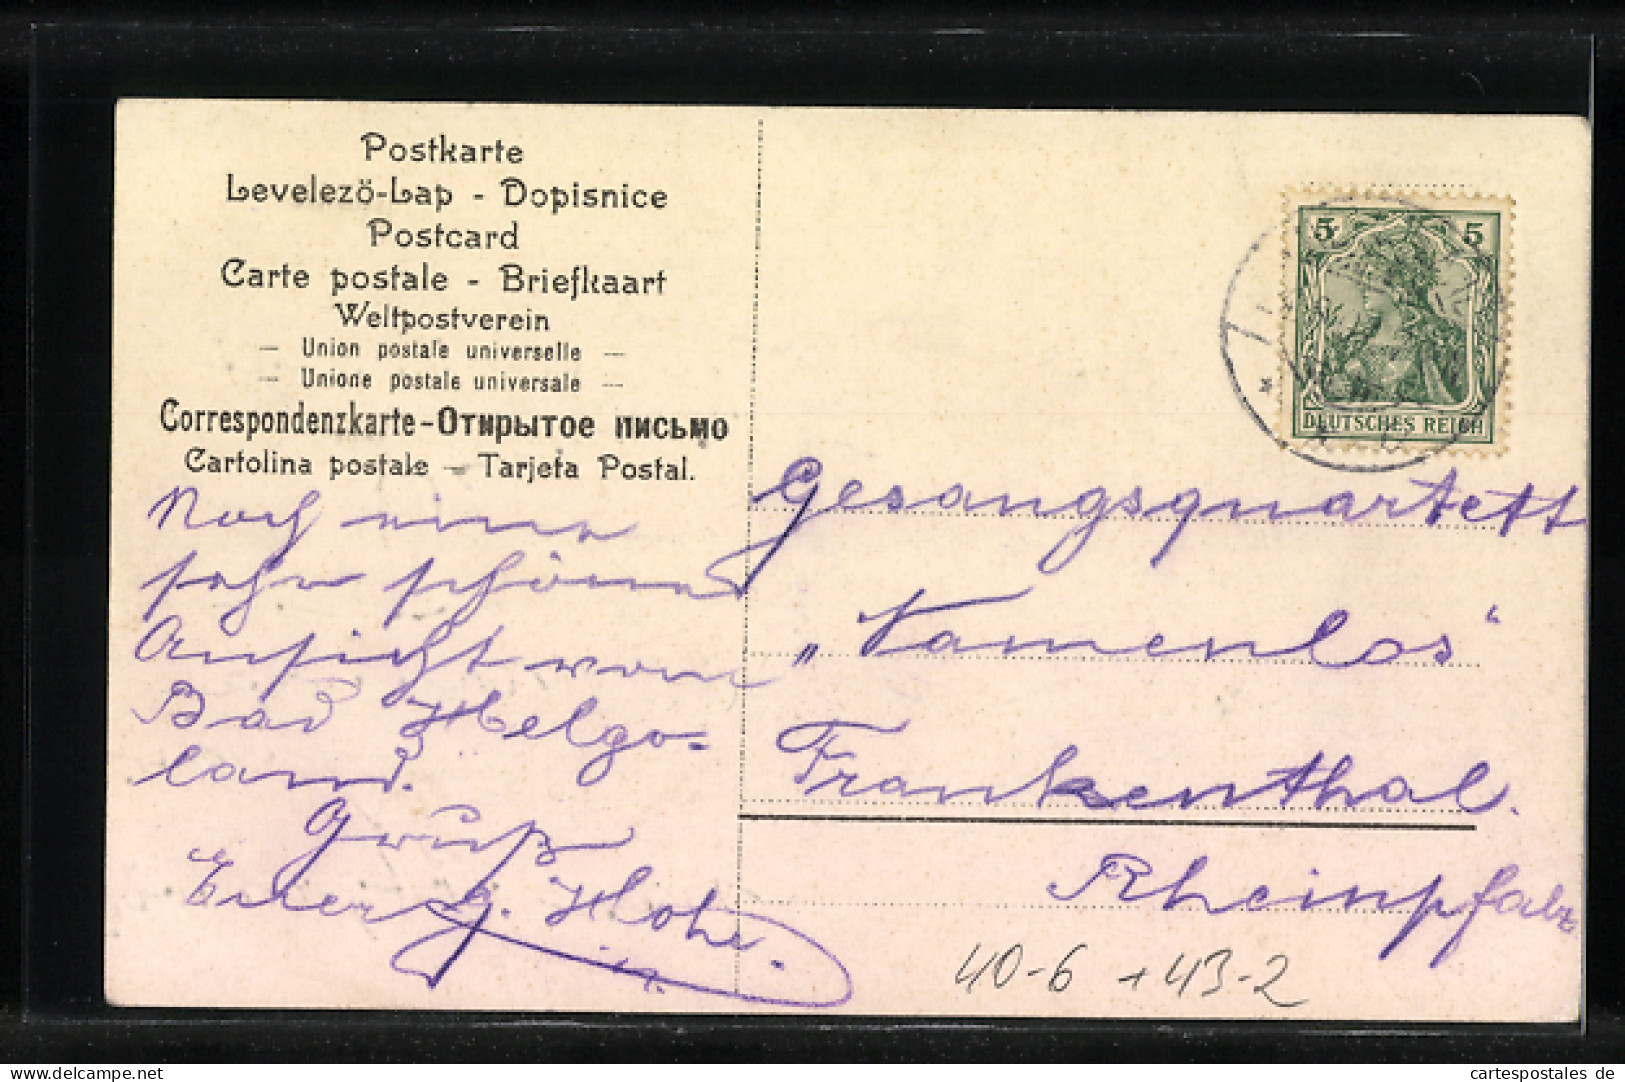 Postkarte
Levelező-Lap - Dopisnice
Postcard
Carte postale - Briefkaart
Weltpostverein
— Union postale universelle —
— Unione postale universale —
Correspondenzkarte - Открытое письмо
Cartolina postale — Tarjeta Postal.
Noch eine
sehr schöne
Ansicht von
Bad Helgo-
land.
Gruß
Euer
5 5
DEUTSCHES REICH
Gesangsquartett
„Namenlos“
Frankenthal.
Rheinpfalz
40-6 + 43-2
www.delcampe.net
cartespostales de